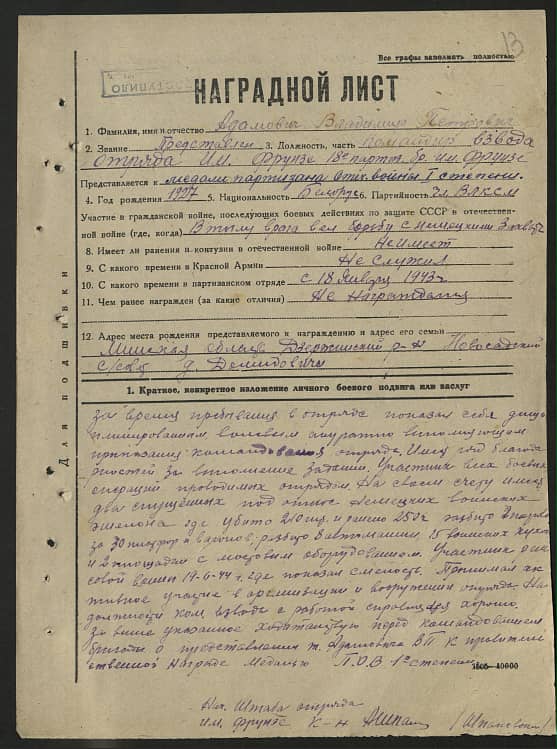 13
Все графы заполнять полностью
НАГРАДНОЙ ЛИСТ
1. Фамилия, имя и отчество Адамович Владимир Петрович
2. Звание Представлен 3. Должность, часть командир взвода
отряда им. Фрунзе 18 парт. бр. им. Фрунзе
Представляется к медали партизана отеч. войны I степени.
4. Год рождения 1927 5. Национальность Белорус 6. Партийность Чл ВЛКСМ
Участие в гражданской войне, последующих боевых действиях по защите СССР и отечествен-
ной войне (где, когда) В тылу врага вел борьбу с немецкими захват
8. Имеет ли ранения и контузии в отечественной войне Не имеет
9. С какого времени в Красной Армии Не служил
10. С какого времени в партизанском отряде с 18 января 1943 г
11. Чем ранее награжден (за какие отличия) Не награждался
12. Адрес места рождения представляемого к награждению и адрес его семьи
Минская область Дзержинский р-н Новосадский
с/совет д. Демидовичи
Для подшивки
1. Краткое, конкретное изложение личного боевого подвига или заслуг
За время пребывания в отряде показал себя дисц
иплинированным волевым аккуратно выполняющим
приказания командования отряда. Имел ряд благода
рностей за выполнение заданий. Участник всех боевых
операций проводимых отрядом. На своем счету имеет
два спущенных под откос немецких воинских
эшелона где убито и ранено разбито 2 паровоза
30 платформ и вагонов, разбито 8 автомашин, 15 воинских кухонь
и 2 площадки с мостовым оборудованием. Участник рель
совой войны 19-6-44 г. где показал смелость. Принимал ак
тивное участие в организации и вооружении отряда. На
должности ком. взвода с работой справлялся хорошо.
За выше указанное ходатайствую перед командованием
бригады о представлении т. Адамовича В.П. к правитель
ственной награде Медалью П.О.В 1ой степени
1605-40000
Нач. Штаба отряда
им. Фрунзе к-н